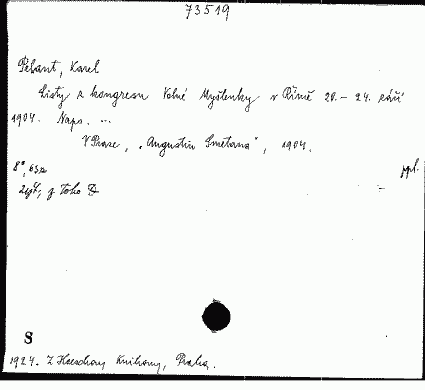 73519
Pelant, Karel
Listy z kongresu Volné Myšlenky v Římě 20. – 24. září
1904. Naps. ...
V Praze, "Augustin Smetana", 1904.
8°, 63 s.
ppl.
z toho
S
1924. Z Knihovny, Praha.